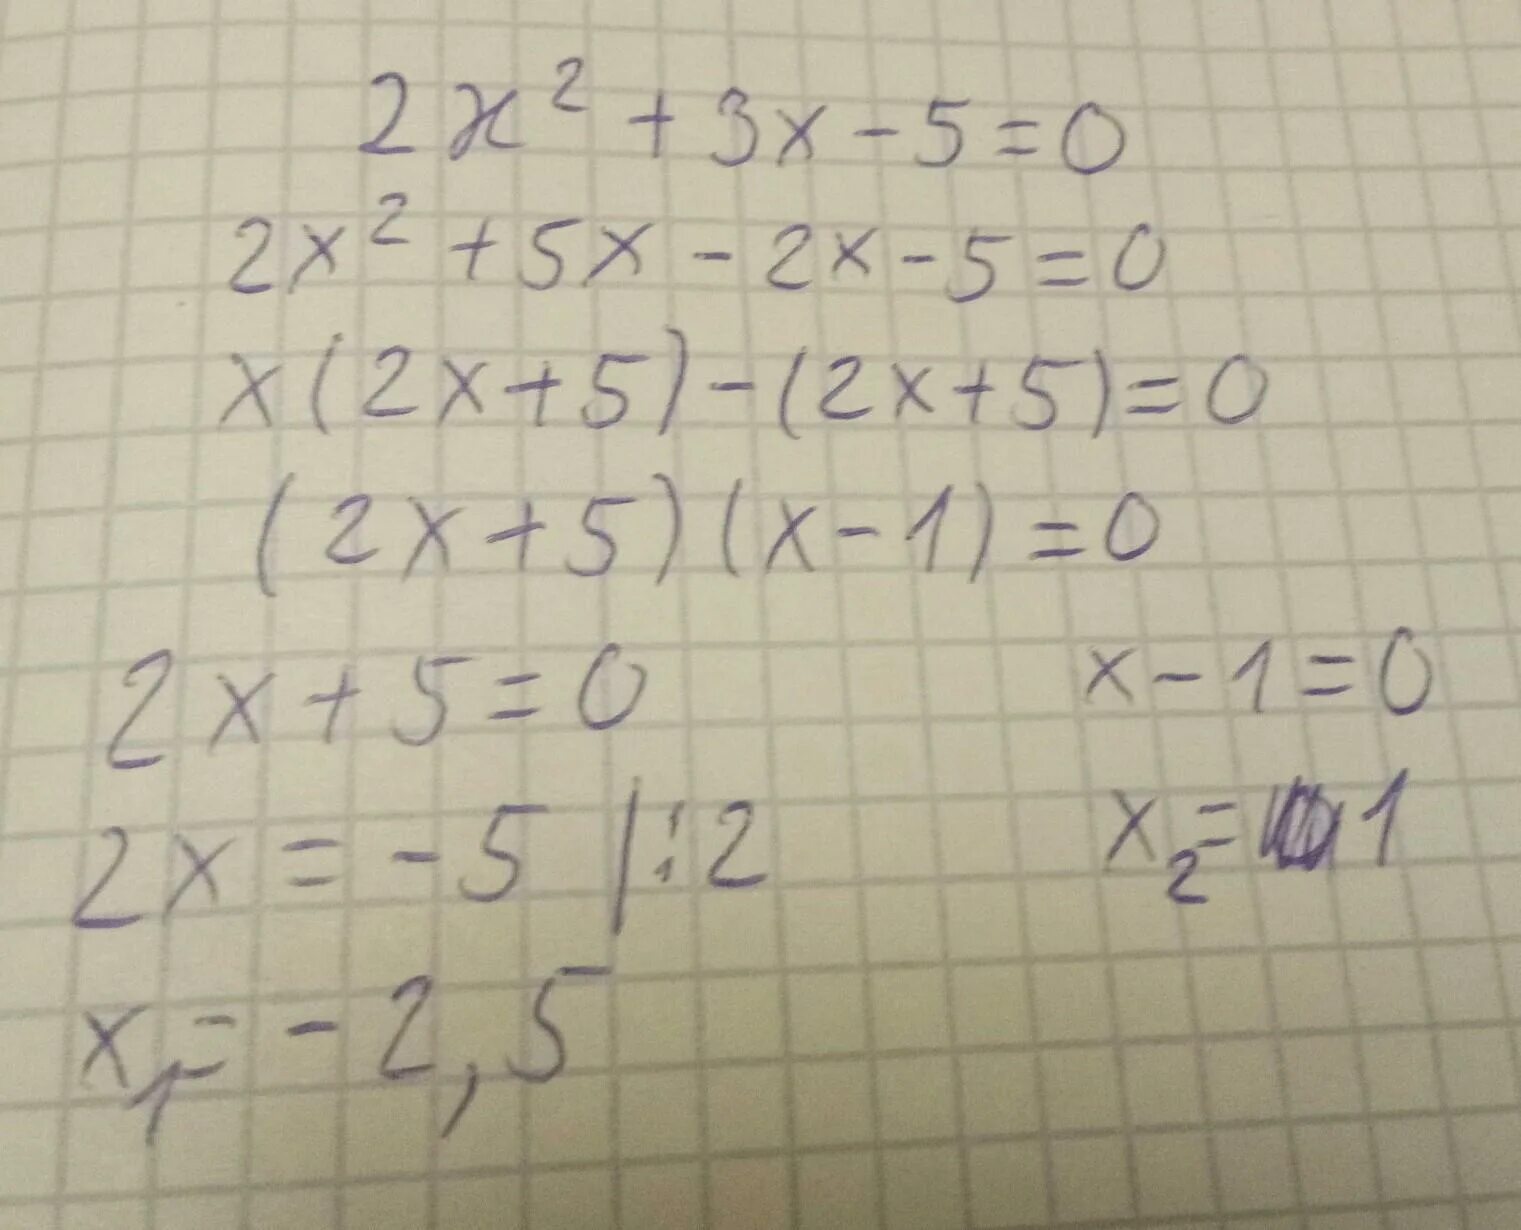 2x² + 3x - 5 = 0
2x² + 5x - 2x - 5 = 0
x(2x + 5) - (2x + 5) = 0
(2x + 5)(x - 1) = 0
2x + 5 = 0
2x = -5 |:2
x₁ = -2,5
x - 1 = 0
x₂ = 1